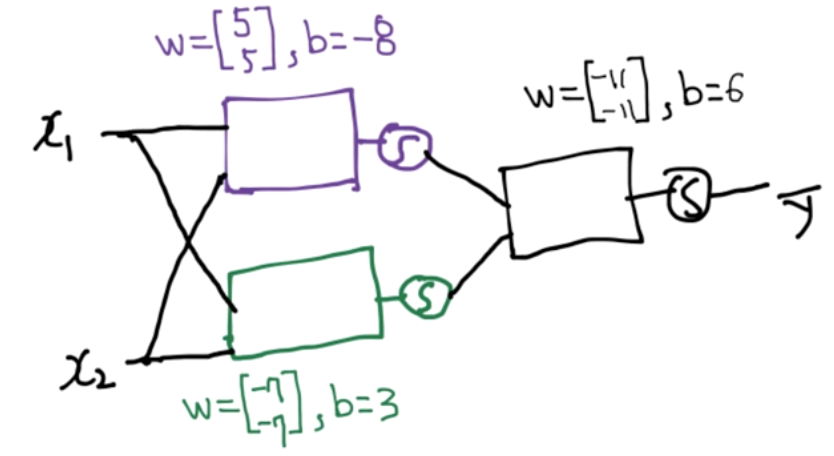 w=[5 5], b=-8
w=[-11 -11], b=6
x₁
S
S
y̅
S
x₂
w=[-7 -7], b=3